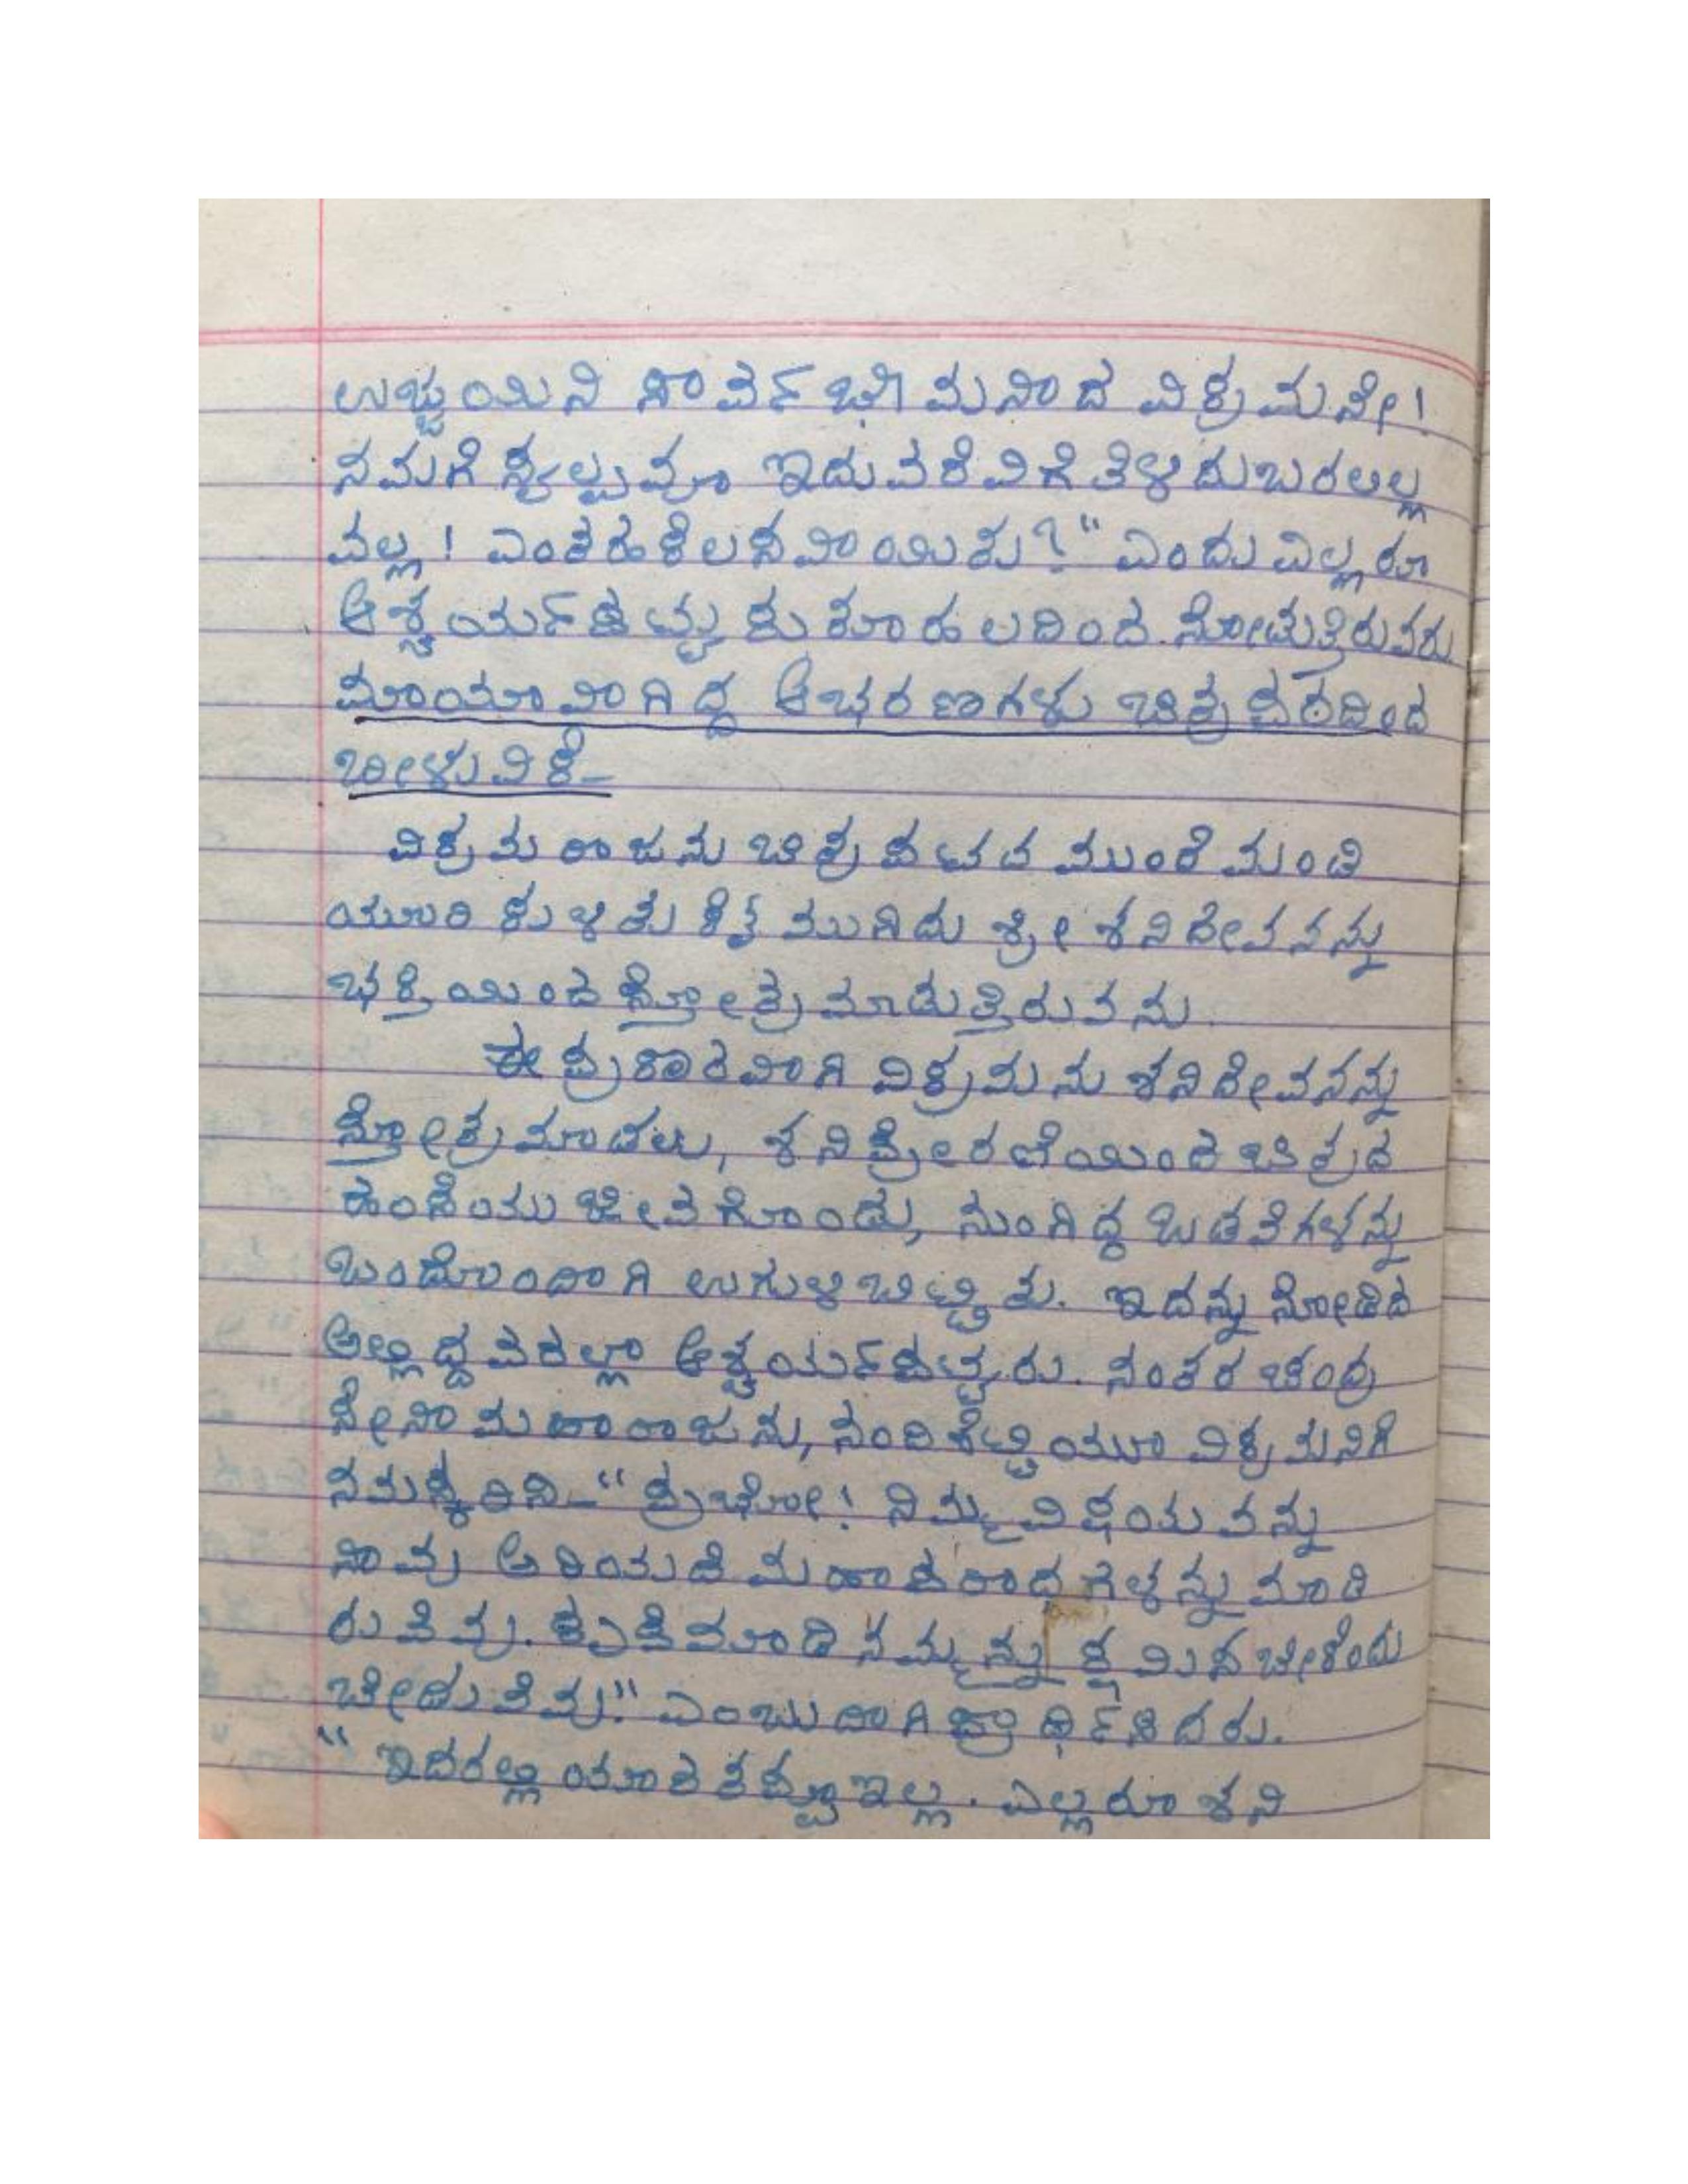 ಉಜ್ಜಯಿನಿ ಸಾರ್ವಭೌಮನಾದ ವಿಕ್ರಮನೇ!
ನಮಗೆ ಸ್ವಲ್ಪವೂ ಇದುವರೆವಿಗೆ ತಿಳಿದುಬರಲಿಲ್ಲ
ವಲ್ಲ! ಎಂತಹ ಕೆಲಸವಾಯಿತು?" ಎಂದು ಎಲ್ಲರೂ
ಆಶ್ಚರ್ಯಪಟ್ಟು ಕುತೂಹಲದಿಂದ ನೋಡುತ್ತಿರುವರು
ಮಾಯಾವಾಗಿದ್ದ ಆಭರಣಗಳು ಚಿತ್ರಪಠದಿಂದ
ಬೀಳುವಿಕೆ-
ವಿಕ್ರಮ ರಾಜನು ಚಿತ್ರಪಟದ ಮುಂದೆ ಮಂಡಿ
ಯೂರಿ ಕುಳಿತು ಕೈ ಮುಗಿದು ಶ್ರೀ ಶನಿದೇವನನ್ನು
ಭಕ್ತಿಯಿಂದ ಸ್ತೋತ್ರ ಮಾಡುತ್ತಿರುವನು.
ಈ ಪ್ರಕಾರವಾಗಿ ವಿಕ್ರಮನು ಶನಿದೇವನನ್ನು
ಸ್ತೋತ್ರ ಮಾಡಲು, ಶನಿಪ್ರೇರಣೆಯಿಂದ ಚಿತ್ರದ
ಹಂಸೆಯು ಜೀವಗೊಂಡು, ನುಂಗಿದ್ದ ಒಡವೆಗಳನ್ನು
ಒಂದೊಂದಾಗಿ ಉಗುಳಿಬಿಟ್ಟಿತು. ಇದನ್ನು ನೋಡಿದ
ಅಲ್ಲಿದ್ದವರೆಲ್ಲಾ ಆಶ್ಚರ್ಯಪಟ್ಟರು. ನಂತರ ಚಂದ್ರ
ಸೇನಾ ಮಹಾರಾಜನು, ನಂದಿಶೆಟ್ಟಿಯೂ ವಿಕ್ರಮನಿಗೆ
ನಮಸ್ಕರಿಸಿ-"ಪ್ರಭೋ! ನಿಮ್ಮ ವಿಷಯವನ್ನು
ನಾವು ಅರಿಯದೆ ಮಹಾಪರಾಧಗಳನ್ನು ಮಾಡಿ
ರುವೆವು. ಕೃಪೆಮಾಡಿ ನಮ್ಮನ್ನು ಕ್ಷಮಿಸಬೇಕೆಂದು
ಬೇಡುವೆವು." ಎಂಬುದಾಗಿ ಪ್ರಾರ್ಥಿಸಿದರು.
"ಇದರಲ್ಲಿ ಯಾರ ತಪ್ಪೂ ಇಲ್ಲ. ಎಲ್ಲರೂ ಶನಿ